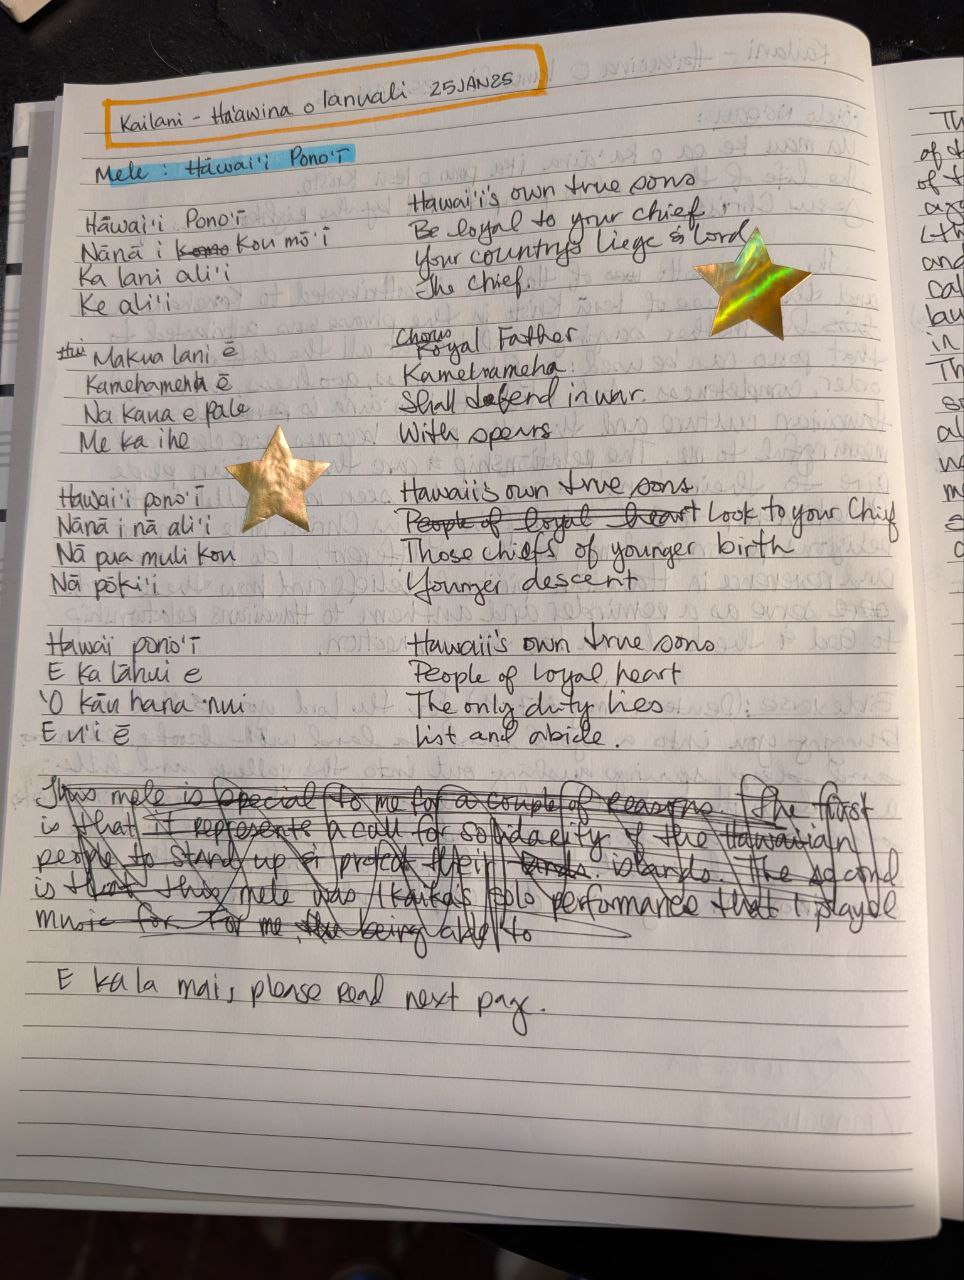 Kailani - Ha'awina o Ianuali 25JAN25
Mele : Hāwai'i Pono'ī
Hāwai'i Pono'ī
Hawai'i's own true sons
Nānā i kou mō'ī
Be loyal to your chief
Ka lani ali'i
Your countrys liege & Lord
Ke ali'i
The chief.
Hui
Chorus
Makua lani ē
Royal Father
Kamehameha ē
Kamehameha
Na kaua e pale
Shall defend in war.
Me ka ihe
With spears
Hawai'i pono'ī
Hawaii's own true sons
Nānā i nā ali'i
People of loyal heart Look to your Chief
Nā pua muli kou
Those chiefs of younger birth
Nā pōki'i
Younger descent
Hawaii pono'ī
Hawaii's own true sons
E ka lāhui e
People of loyal heart
'O kāu hana nui
The only duty lies
E u'i ē
List and abide.
This mele is special to me for a couple of reasons. The first
is that it represents a call for solidacity of the Hawaiian
people to stand up & protect their lands. islands. The second
is that this mele was Ikaika's solo performance that I played
music for. For me, the being able to
E kala mai, please read next page.
Th
of t
of t
and
cal
in
Th